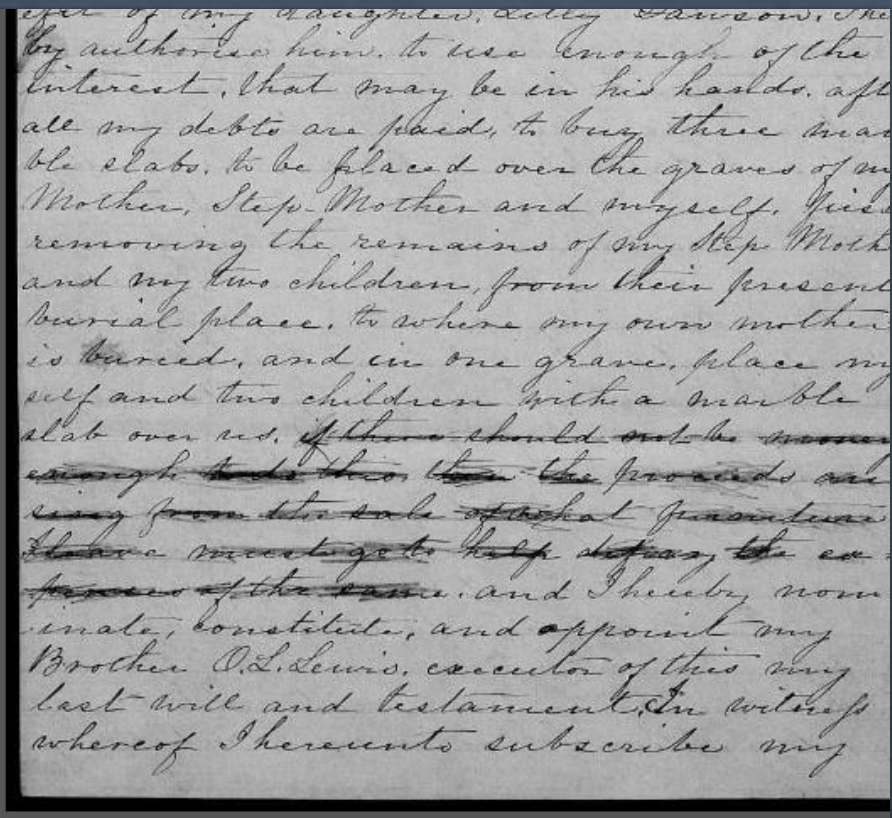 of my daughter, Lilly Dawson. The
by authorise him. to use enough of the
interest, that may be in his hands. aft
all my debts are paid, to buy three mar
ble slabs. to be placed over the graves of my
Mother, Step-Mother and myself. 
removing the remains of my Step Moth
and my two children, from their present
burial place. to where my own mother
is buried. and in one grave. place my
self and two children with a marble
slab over us. if there should not be money
enough to do this then the proceeds ari
sing from the sale of what furniture
I leave must go to help defray the ex
penses of the same. and I hereby nom
inate, constitute, and appoint my
Brother O.L. Lewis. executor of this my
last will and testament. In witness
whereof I hereunto subscribe my